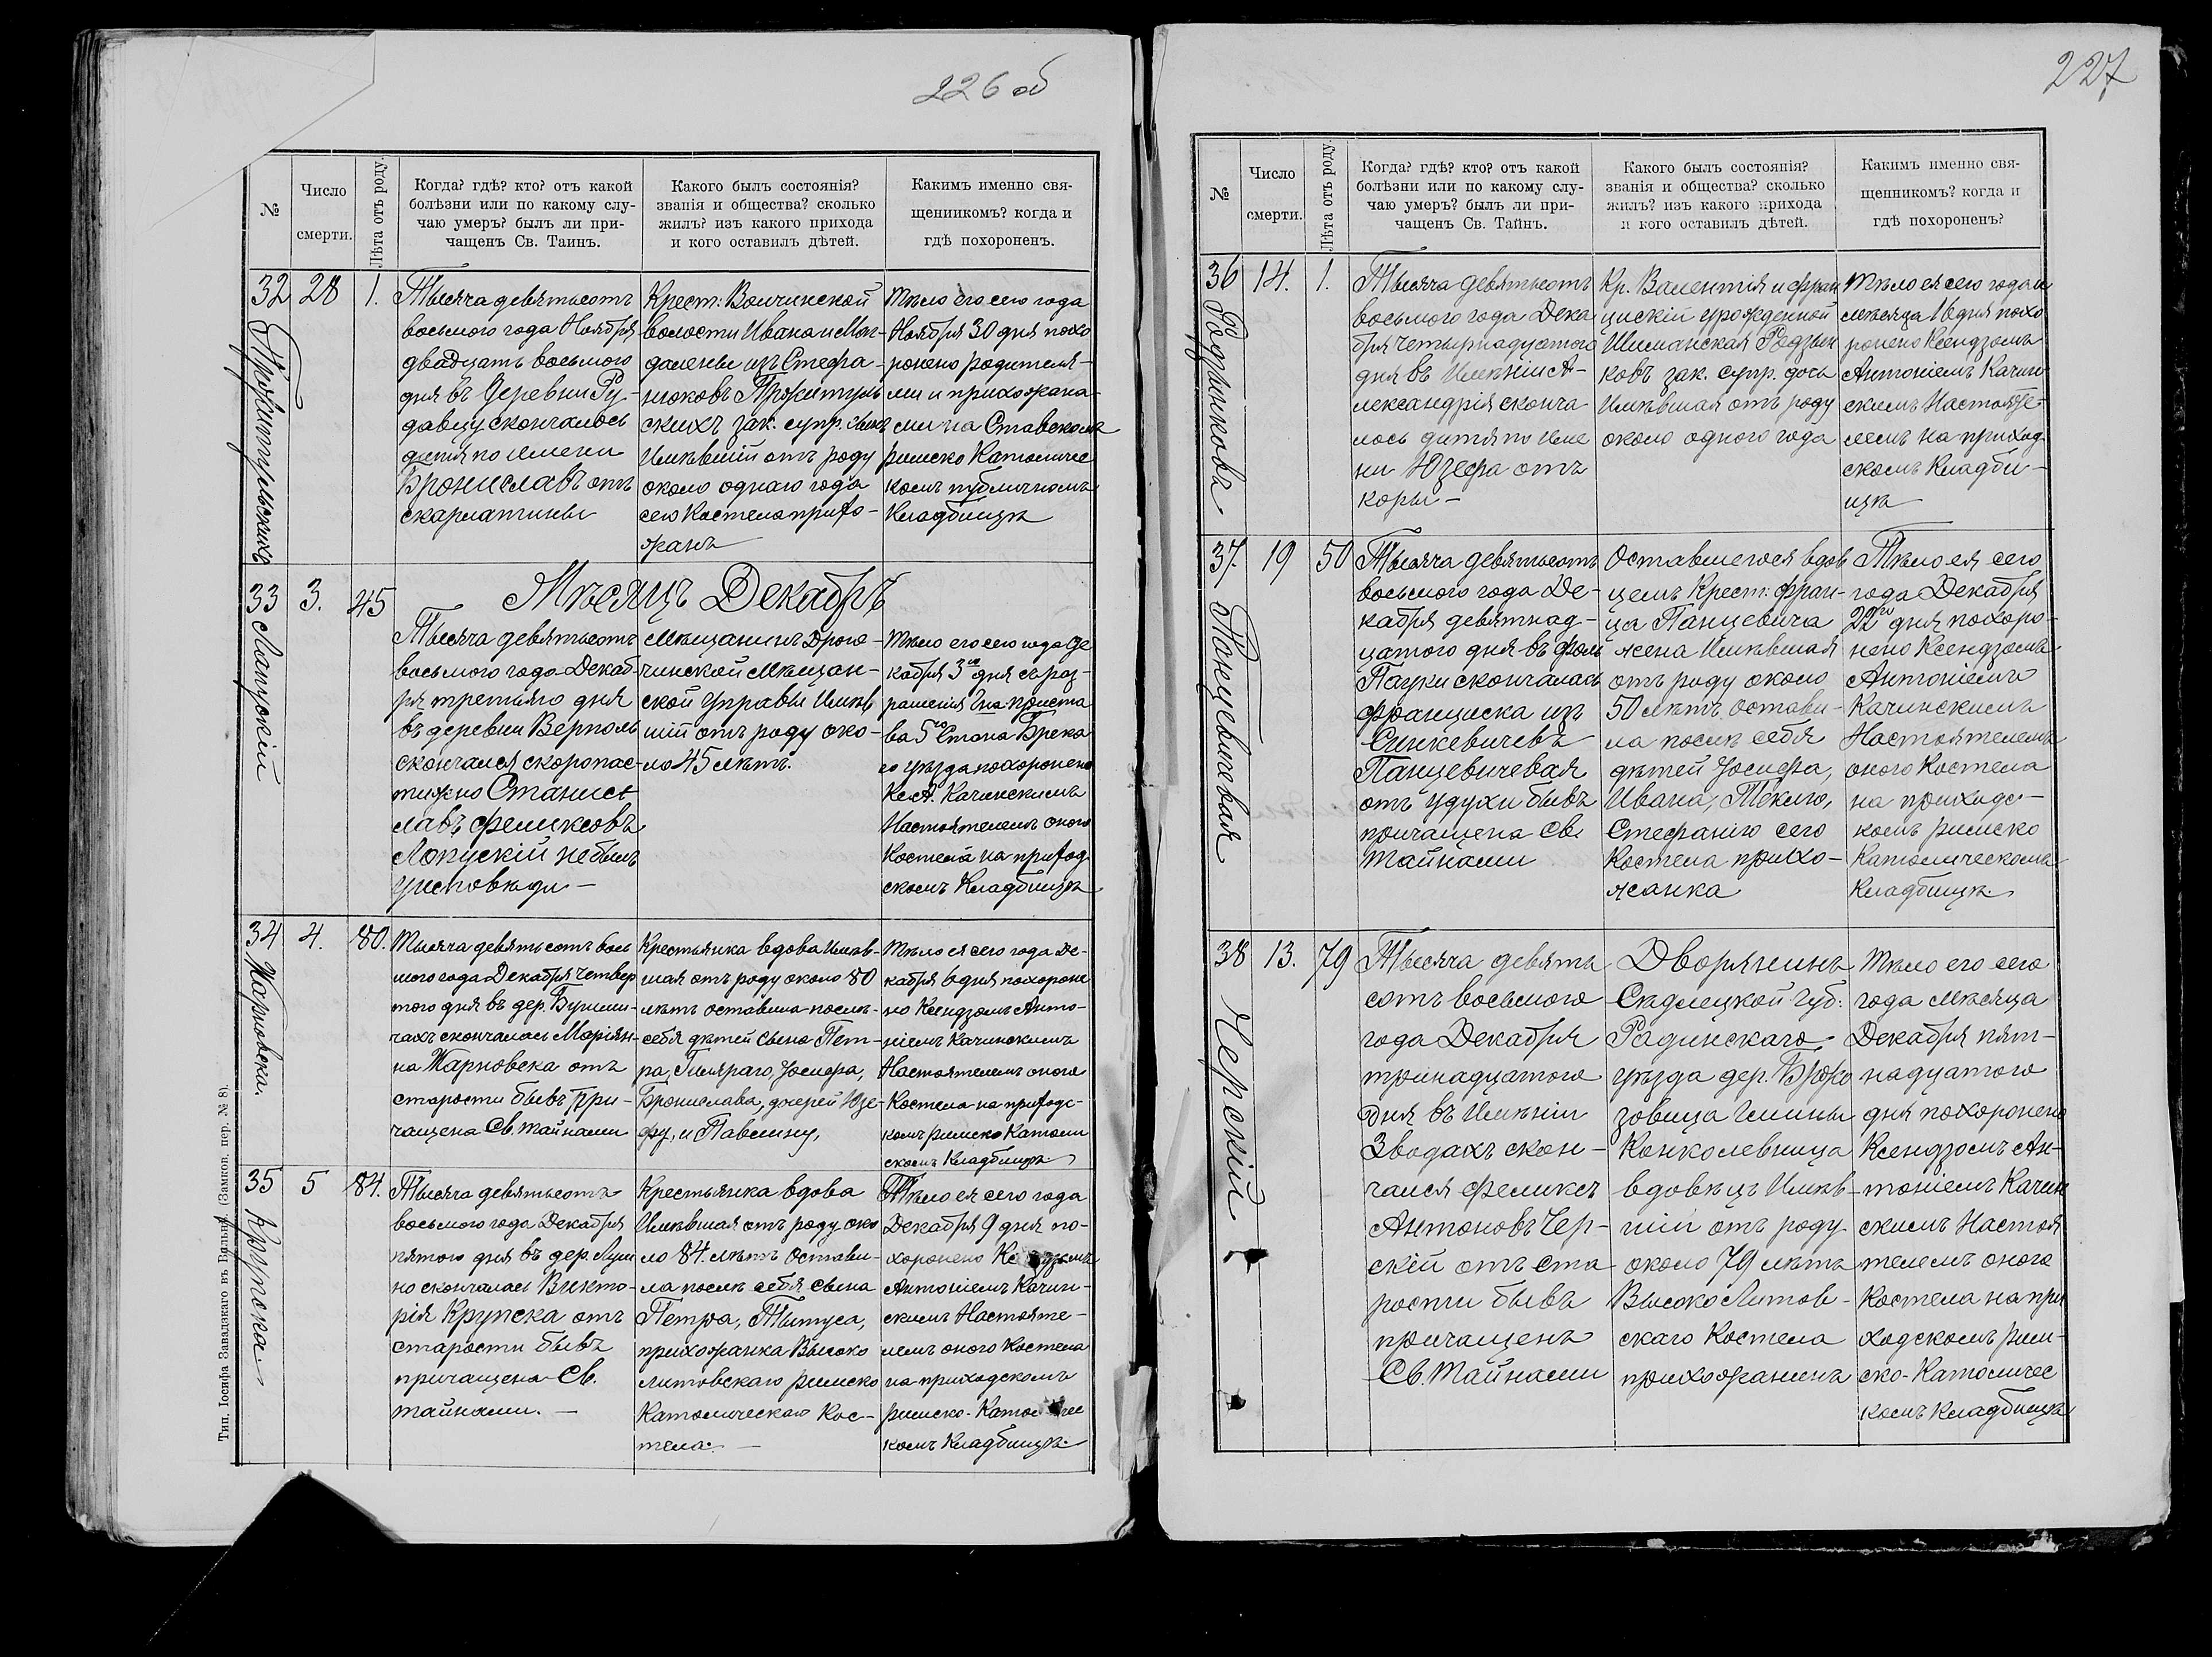 226 об
№
Число
смерти.
Лѣта отъ роду.
Когда? гдѣ? кто? отъ какой
болѣзни или по какому слу-
чаю умеръ? былъ ли при-
чащенъ Св. Таинъ.
Какого былъ состоянія?
званія и общества? сколько
жилъ? изъ какого прихода
и кого оставилъ дѣтей.
Какимъ именно свя-
щенникомъ? когда и
гдѣ похороненъ.
32
28
1.
Тысяча девятьсотъ
восьмого года Ноября
двадцать восьмого
дня въ деревни Ру-
давцу скончалось
дитя по имени
Брониславъ отъ
скарлатины
Крест: Волчинской
волости Ивана и Маг-
далены изъ Стефа-
нюковъ
скихъ зак. супр. сынъ
Имѣвшій отъ роду
около однаго года
сего Костела прихо-
жанъ
Тѣло его сего года
Ноября 30 дня похо
ронено родителя-
ми и прихожана-
ми на Ставскомъ
римско Католичес
комъ публичномъ
Кладбищѣ
Мѣсяцъ Декабръ
33
3.
45
Лапускій
Тысяча девятьсотъ
восьмого года Декаб-
ря третьяго дня
въ деревни Верполь
скончался скоропос-
тижно Станис-
лавъ Феликсовъ
Лопускій не былъ
уисповѣди —
Мѣщанинъ Дрого-
чинской Мѣщан-
ской Управы Имѣв
шій отъ роду око-
ло 45 лѣтъ.
Тѣло его сего года Де
кабря 3го дня съ раз-
рѣшенія Г-на Приста
ва 5го Стана Бреска
го уѣзда похоронено
Кс. А. Качинскимъ
Настоятелемъ оного
Костела на приход
скомъ Кладбищѣ
34
4.
80.
Жарновска.
Тысяча девятьсотъ вось
мого года Декабря четвер
того дня въ дер.
чахъ скончалась Маріян-
на Жарновска отъ
старости бывъ при-
чащена Св. тайнами
Крестьянка вдова Имѣв-
шая отъ роду около 80
лѣтъ оставила послѣ-
себя дѣтей сына Пет-
ра, Гиляраго, Іосифа,
Бронислава, дочерей Юзе-
фу, и Павлину,
Тѣло ея сего года Де-
кабря 6 дня похороне
но Ксендзомъ Анто-
ніемъ Качинскимъ
Настоятелемъ оного
Костела на приходс-
комъ римско Католи
скомъ Кладбищѣ
35
5
84.
Крупска.
Тысяча девятьсотъ
восьмого года Декабря
пятого дня въ дер.
но скончалась Викто-
рія Крупска отъ
старости бывъ
причащена Св.
тайнами. —
Крестьянка вдова
Имѣвшая отъ роду око
ло 84. лѣтъ Остави-
ла послѣ себя сына
Петра, Тытуса,
прихожанка Высоко
литовскаго римско
Католическаго Кос-
тела. —
Тѣло ея сего года
Декабря 9 дня по-
хоронено
Антоніемъ Качин-
скимъ Настояте-
лемъ оного Костела
на приходскомъ
римско-
комъ Кладбищѣ.
Тип. Іосифа Завадзкаго въ Вильнѣ. (Замков. пер. № 8).
227
№
Число
смерти.
Лѣта отъ роду.
Когда? гдѣ? кто? отъ какой
болѣзни или по какому слу-
чаю умеръ? былъ ли при-
чащенъ Св. Тайнъ.
Какого былъ состоянія?
званія и общества? сколько
жилъ? изъ какого прихода
и кого оставилъ дѣтей.
Какимъ именно свя-
щенникомъ? когда и
гдѣ похороненъ?
36
14.
1.
Родзынкова
Тысяча девятьсотъ
восьмого года Дека
бря четырнадцатого
дня въ Имѣніи А-
лександрія сконча
лось дитя по Име
ни Юзефа отъ
коры —
Кр. Валентія и Фран
цискіи урожденной
Шиманская Родзын
ковъ зак. супр. дочь
Имѣвшая отъ роду
около одного года
Тѣло ея сего года и
мѣсяца 16 дня похо
ронено Ксендзомъ
Антоніемъ Качин-
скимъ Настояте-
лемъ на приход-
скомъ Кладби-
щѣ
37.
19
50
Панцевичевая
Тысяча девятьсотъ
восьмого года Де-
кабря девятнад-
цатого дня въ фоль
Пауки скончалась
Франциска изъ
Синкевичевъ
Панцевичевая
отъ удухи бывъ
причащена Св.
тайнами
Оставшегося вдов
цемъ Крест: Фран-
ца Панцевича
жена Имѣвшая
отъ роду около
50 лѣтъ остави-
ла послѣ себя
дѣтей Іосифа,
Ивана, Теклю,
Стефанію сего
Костела прихо-
жанка
Тѣло ея сего
года Декабря
22го дня похоро-
нено Ксендзомъ
Антоніемъ
Качинскимъ
Настоятелемъ
оного Костела
на приходс-
комъ римско
Католическомъ
Кладбищѣ.
38
13.
79
Черскій
Тысяча девять
сотъ восьмого
года Декабря
тринадцатого
дня въ Имѣніи
Зводахъ скон-
чался Феликсъ
Антоновъ Чер-
скій отъ ста
рости бывъ
причащенъ
Св. Тайнами
Дворянинъ
Сѣдлецкой Губ:
Радинскаго
уѣзда дер. Бржо
зовица Гмины
Конколевница
вдовецъ Имѣв-
шій отъ роду
около 79 лѣтъ
Высоко Литов-
скаго Костела
прихожанинъ
Тѣло его сего
года мѣсяца
Декабря пят-
надцатого
дня похоронено
Ксендзомъ Ан-
тоніемъ Качин
скимъ Настоя
телемъ оного
Костела на при
ходскомъ рим-
ско-Католичес
комъ Кладбищѣ